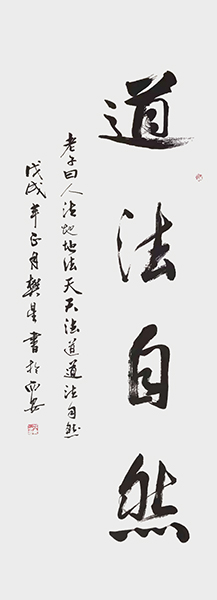 道法自然
老子曰人法地地法天天法道道法自然
戊戌年正月樊星書於西安